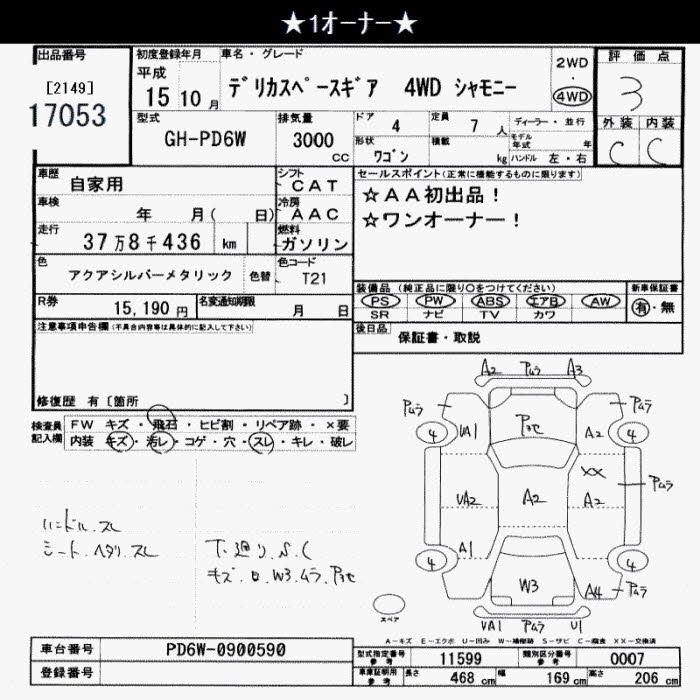 ★1オーナー★
出品番号
[2149]
17053
初度登録年月
平成
15 10 月
車名・グレード
デリカスペースギア 4WD シャモニー
2WD
・
4WD
評価点
3
外装 内装
C C
型式
GH-PD6W
排気量
3000 cc
ドア 4
定員 7 人
形状 ワゴン
積載 kg
ディーラー・並行
モデル年式 年
ハンドル 左・右
車歴 自家用
シフト CAT
車検 年 月( 日)
冷房 AAC
走行 37万8千436 km
燃料 ガソリン
色 アクアシルバーメタリック 色替
色コード T21
R券 15,190 円
名変通知期限 月 日
セールスポイント(正常に機能するものに限ります)
☆AA初出品!
☆ワンオーナー!
装備品 (純正品に限り○をつけてください)
PS PW ABS エアB AW
SR ナビ TV カワ
新車保証書
有・無
後日品 保証書・取説
注意事項申告欄(不具合内容等は具体的に記入して下さい)
修復歴 有〔箇所 〕
検査員記入欄
FW キズ・飛石・ヒビ割・リペア跡・×要
内装 キズ・汚レ・コゲ・穴・スレ・キレ・破レ
ハンドル.スレ
シート.ヘタリ.スレ
下廻り.S.C
キズ.ロ.W3.ムラ.
A2 Pムラ A3
Pムラ Pムラ
4 VA1 A2 4
VA2 A2 XX A2 Pムラ
A1
4 W3 A4 4 Pムラ
VA1 Pムラ U1
スペア
A-キズ E-エクボ U-凹み W-補修跡 S-サビ C-腐食 XX-交換済
車台番号 PD6W-0900590
登録番号
型式指定番号 参考 11599
類別区分番号 参考 0007
車庫証明用 参考 長さ 468 cm 幅 169 cm 高さ 206 cm